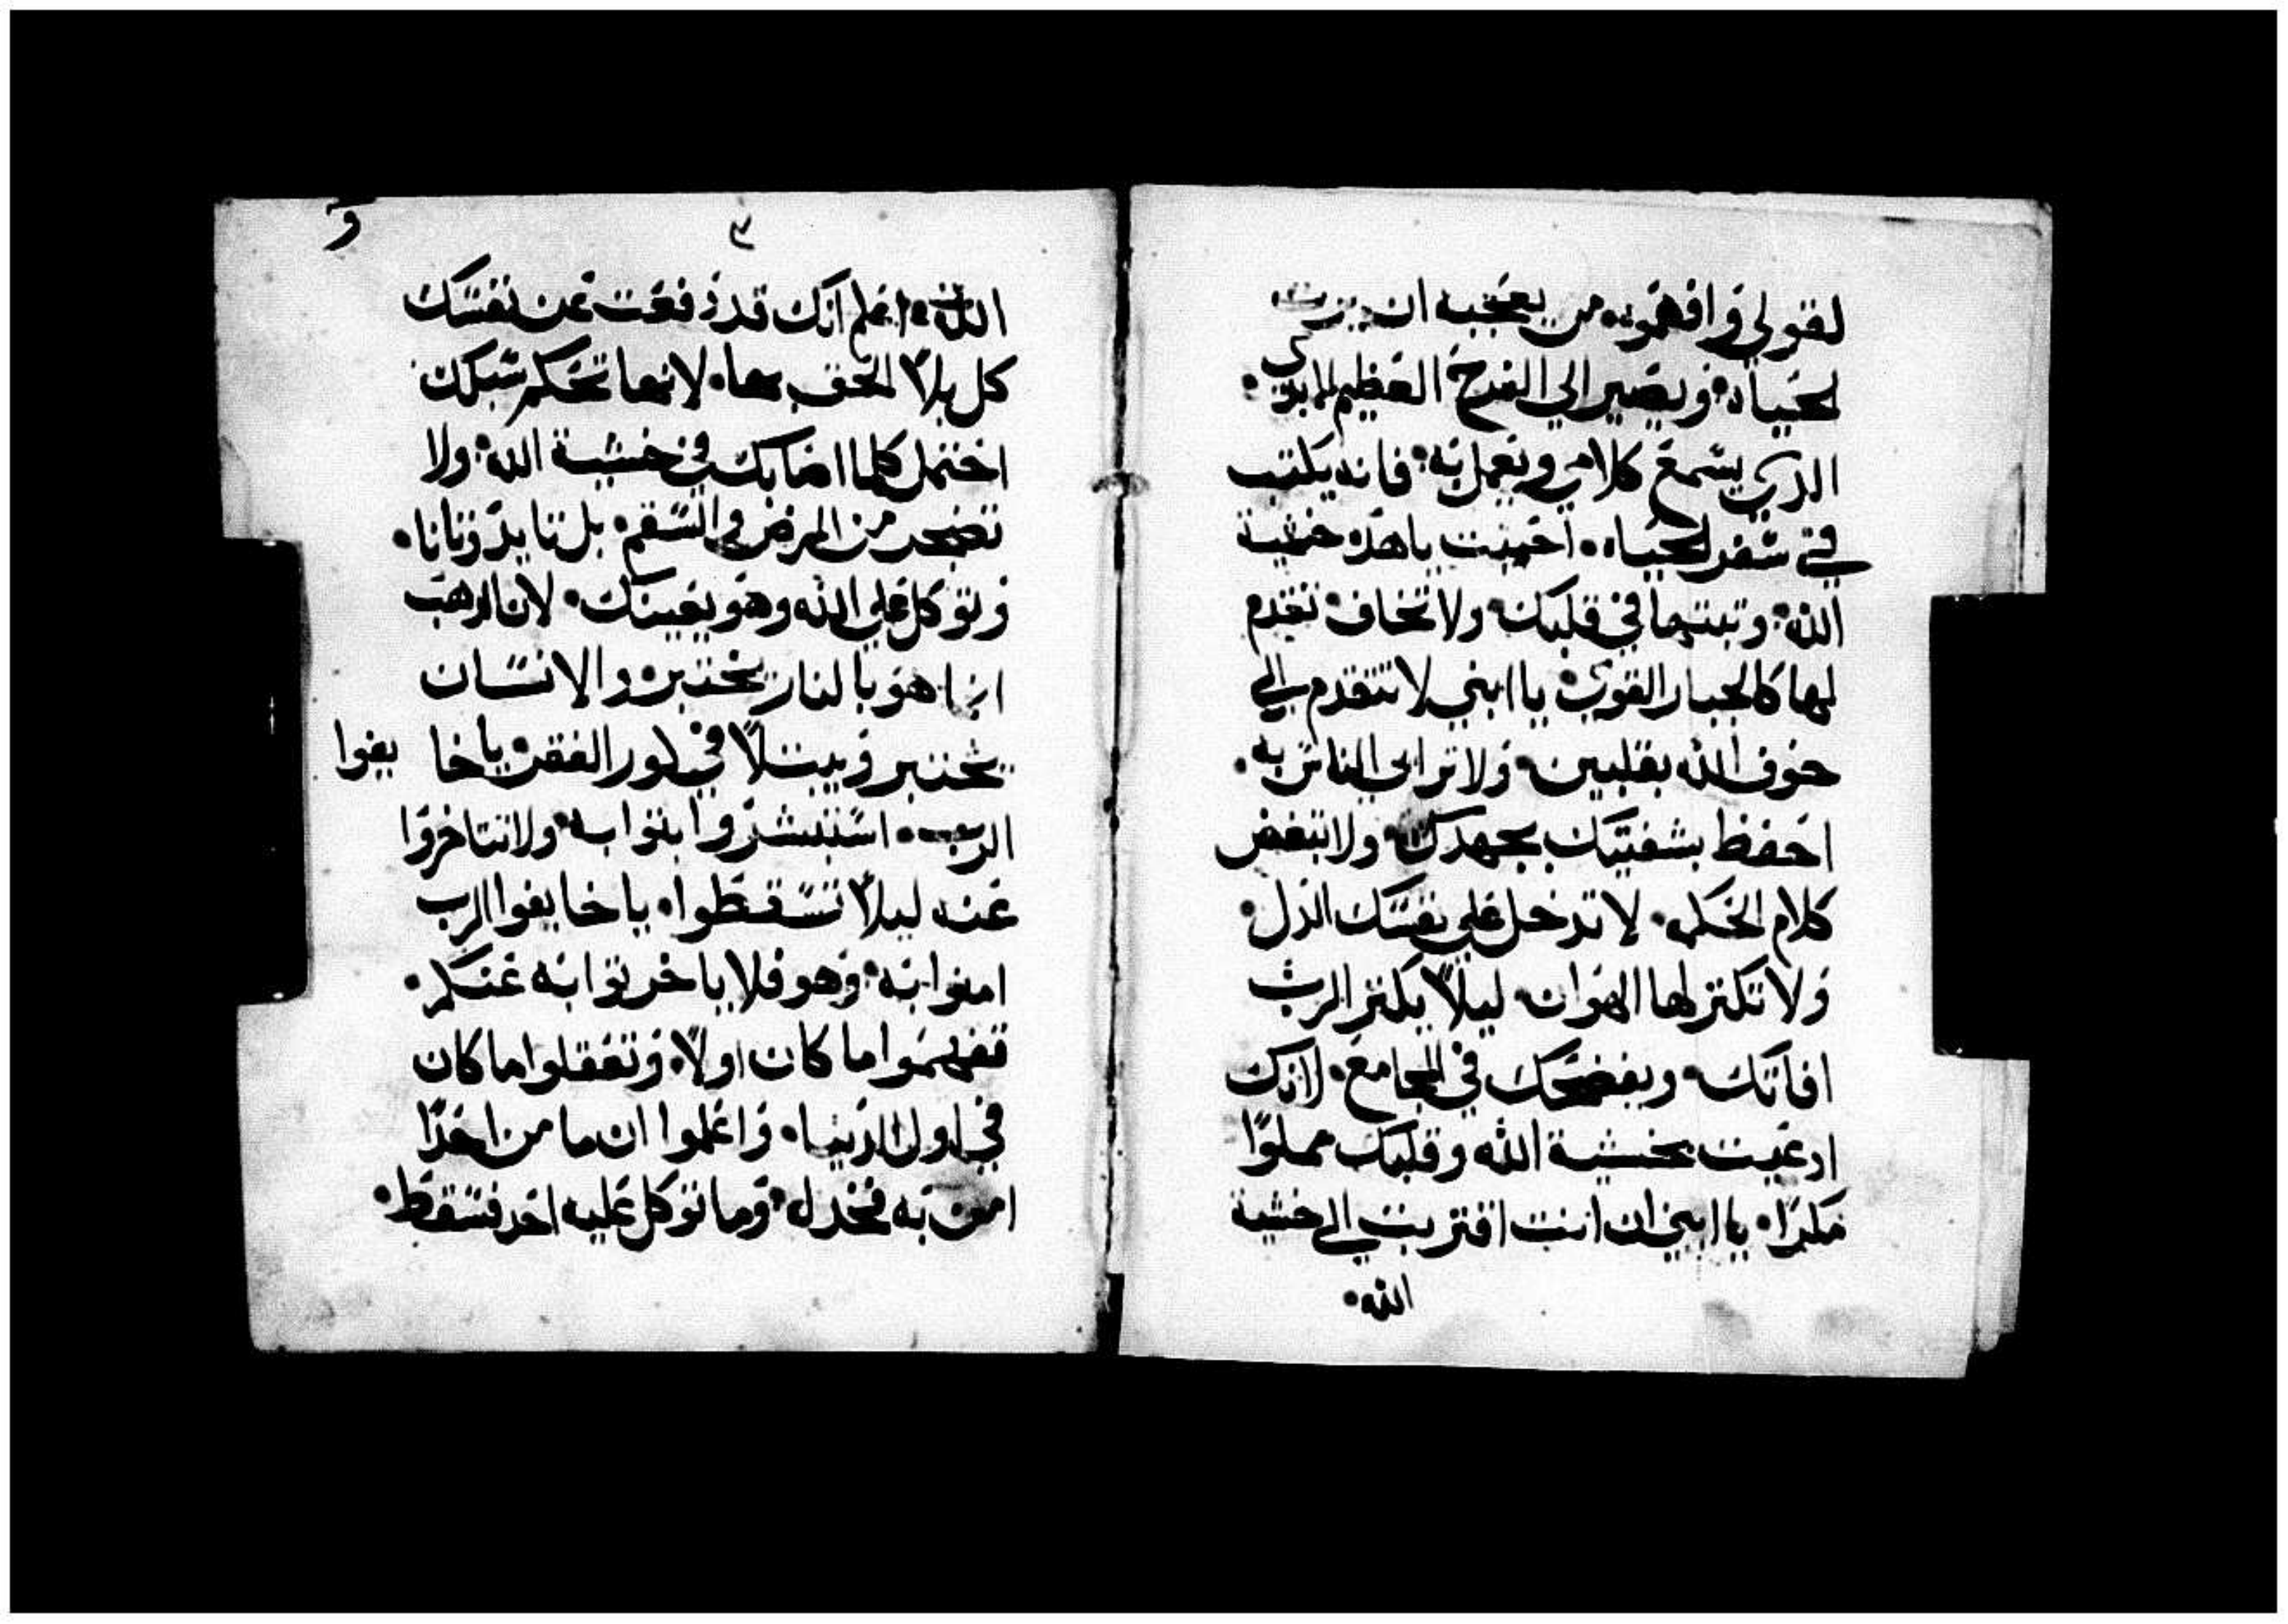 لقولي وافهموه من يعجبه ان يرت
لحياه ويصير الي الفرح العظيم الابدي
الذي يسمع كلامي ويعمل به فانه يكتب
في سفر الحياه احببت ياهذه خشية
الله وتبتها في قلبك ولا تخاف تقدم
لها كالجبار القوي يا ابني لا تتقدم الي
خوف الله بقلبين ولا تراي الناس به
احفظ بشفتيك بجهدك ولا تبغض
كلام الحكمه لا تدخل علي نفسك الذل
ولا تكتر لها الهوان ليلا يكتر الرب
افاتك ويفضحك في المجامع لانك
ادعيت بخشية الله وقلبك مملوا
مكرا يا ابني ان انت اقتربت الي خشية
الله
٣
و
الله اعلم انك قد دفعت عن نفسك
كل بلا الحق بها لانها تحكم سبلك
احتمل كلما اصابك في خشية الله ولا
تضجر من المرض والسقم بل تايد وتانا
وتوكل علي الله وهو يعينك لان الدهب
انما هو بالنار يختبر والانسان
يختبر ويبتلا في كور الفقر يا خايفوا
الرب استبشروا بتوابه ولا تتاخروا
عنه ليلا تسقطوا يا خايفوا الرب
امنوا به وهو فلا ياخر توابه عنكم
تفهموا ما كان اولا وتعقلوا ما كان
في اول الدنيا واعلموا ان ما من احدا
امن به فخدل وما توكل عليه احد فسقط